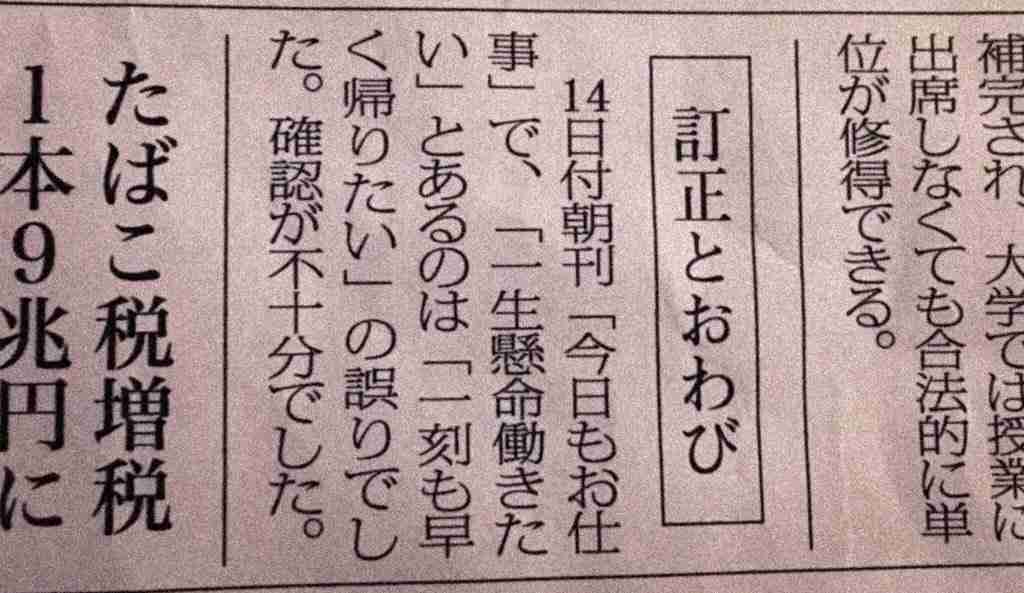 補完され、大学では授業に
出席しなくても合法的に単
位が修得できる。
訂正とおわび
14日付朝刊「今日もお仕
事」で、「一生懸命働きた
い」とあるのは「一刻も早
く帰りたい」の誤りでし
た。確認が不十分でした。
たばこ税増税
1本9兆円に